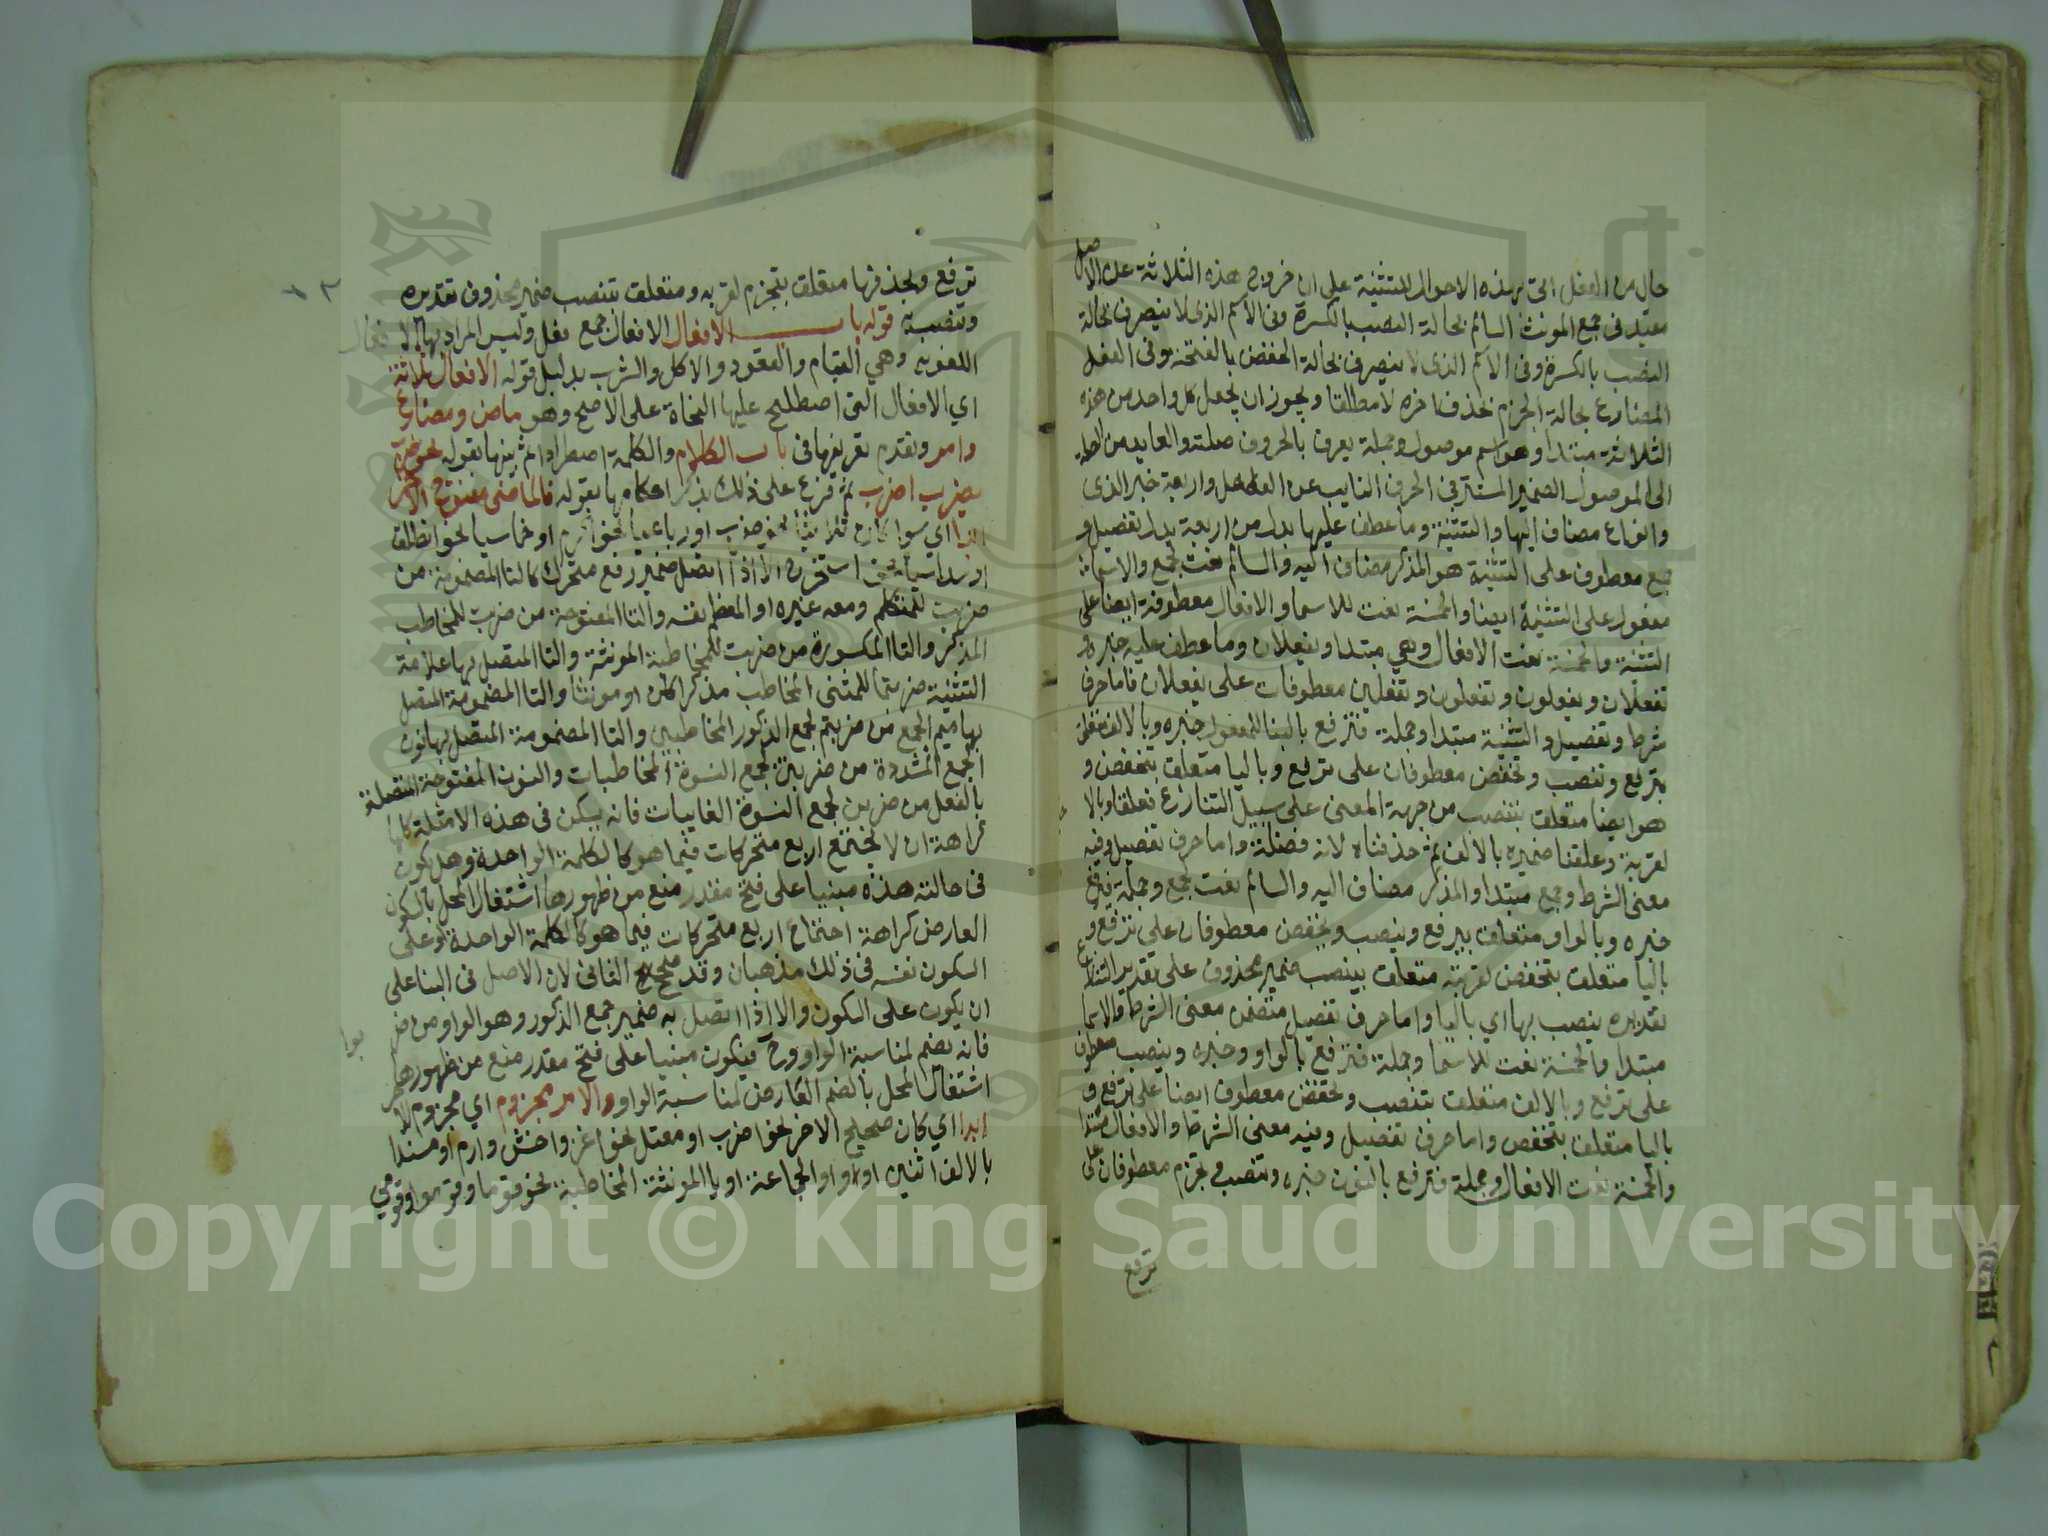 حال من الفعل اتى بهذه الاحوال للتثنية على ان خروج هذه الثلاثة عن الاصل
مقيد فى جمع المونث السالم بحالة النصب بالكسرة وفى الاسم الذى لا ينصرف بحالة
النصب بالكسرة وفى الاسم الذى لا ينصرف بحالة الخفض بالفتحة وفى الفعل
المضارع بحالة الجزم بحذف اخره لا مطلقا ويجوز ان يجعل كل واحد من هذه
الثلاثة مبتدا وهو اسم موصول وجملة يعرب بالحروف صلته والعايد من الصلة
الى الموصول الضمير المستتر فى الحرف النايب عن الفاعل واربعة خبر الذى
وانواع مضاف اليها والتثنية وما عطف عليها بدل من اربعة بدل تفصيل و
جمع معطوف على التثنية هو المذكر مضاف اليه والسالم نعت لجمع والاسما
معطوف على التثنية ايضا والخمسة نعت للاسما والافعال معطوفة ايضا على
التثنية والخمسة نعت الافعال وهي مبتدا ويفعلان وما عطف عليه خبره و
تفعلان ويفعلون وتفعلون وتفعلين معطوفات على يفعلان فاما حرف
شرط وتفصيل والتثنية مبتدا وجملة فترفع بالبنا للمفعول خبره وبالالف متعلق
بترفع وتنصب وتخفض معطوفان على ترفع وباليا متعلق بتخفض و
هو ايضا متعلق بتنصب من جهة المعنى على سبيل التنازع فعلقناه بالا
لقربه وعلقنا ضميره بالالف ثم حذفناه لانه فضلة واما حرف تفصيل وفيه
معنى الشرط وجمع مبتدا والمذكر مضاف اليه والسالم نعت لجمع وجملة فيرفع
خبره وبالواو متعلق بيرفع وينصب ويخفض معطوفان على يرفع و
باليا متعلق بتخفض لقربه متعلق بينصب ضمير محذوف على تقدير التنازع
تقديره ينصب بها اي باليا واما حرف تفصيل متضمن معنى الشرط والاسما
مبتدا والخمسة نعت للاسما وجملة فترفع بالواو وخبره وينصب معطوف
على ترفع وبالالف متعلق بتنصب وتخفض معطوف ايضا على ترفع و
باليا متعلق بتخفض واما حرف تفصيل وفيه معنى الشرط والافعال مبتدا
والخمسة نعت الافعال وجملة فترفع بالنون خبره وتنصب وتجزم معطوفان على
ترفع
ترفع وبحذفها متعلق بتجزم لقربه ومتعلق بتنصب ضمير محذوف تقديره
وتنصب به قوله باب الافعال الافعال جمع فعل وليس المراد بها الافعال
اللغويه وهي القيام والقعود والاكل والشرب بدليل قوله الافعال ثلاثة
اي الافعال التى اصطلح عليها النحاة على الاصح وهو ماض ومضارع
وامر وتقدم تعريفها فى باب الكلام والكلمة اصطرادا ثم بينها بقوله نحو ضرب
يضرب اضرب ثم فرع على ذلك بذكر احكامها بقوله فالماضى مفتوح الاخر
ابدا اي سوا كان ثلاثيا نحو ضرب او رباعيا نحو اكرم او خماسيا نحو انطلق
او سداسيا نحو استخرج الا اذا اتصل ضمير رفع متحرك كالتا المضمومة من
ضربت للمتكلم ومعه غيره او المعظم نفسه والتا المفتوحة من ضربت للمخاطب
المذكر والتا المكسورة من ضربت للمخاطبة المونثة والتا المتصل بها علامة
التثنية ضربتما للمثنى المخاطب مذكرا كان او مونثا والتا المضمومة المتصل
بها ميم الجمع من ضربتم لجمع الذكور المخاطبين والتا المضمومة المتصل بها نون
الجمع المشددة من ضربتن لجمع النسوة المخاطبات والنون المفتوحة المتصلة
بالفعل من ضربن لجمع النسوة الغايبات فانه يسكن فى هذه الامثلة كلها
كراهة ان لا يجتمع اربع متحركات فيما هو كالكلمة الواحدة وهل يكون
فى حالته هذه مبنيا على فتح مقدر منع من ظهورها اشتغال المحل بالسكون
العارض كراهة اجتماع اربع متحركات فيما هو كالكلمة الواحدة او على
السكون نفسه فى ذلك مذهبان وقد صحح الثانى لان الاصل فى البنا على
ان يكون على السكون والا اذا اتصل به ضمير جمع الذكور وهو الواو من ضربوا
فانه يضم لمناسبة الواو وح فيكون مبنيا على فتح مقدر منع من ظهورها
اشتغال المحل بالضم العارض لمناسبة الواو والامر مجزوم اي مجزوم الا
ابدا اي كان صحيح الاخر نحو اضرب او معتل نحو اغز واخش وارم او مسندا
بالالف اثنين او واو الجماعة او يا المونثة المخاطبة نحو قوما وقوموا وقومي
Copyright © King Saud University